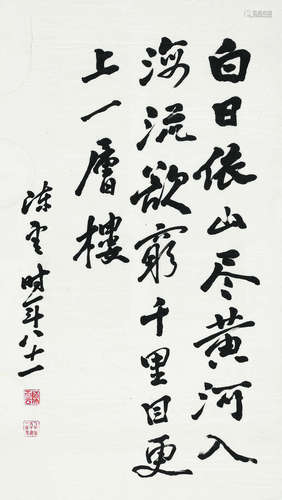 白日依山尽黄河入
海流欲窮千里目更
上一層樓
陈雲时年八十一